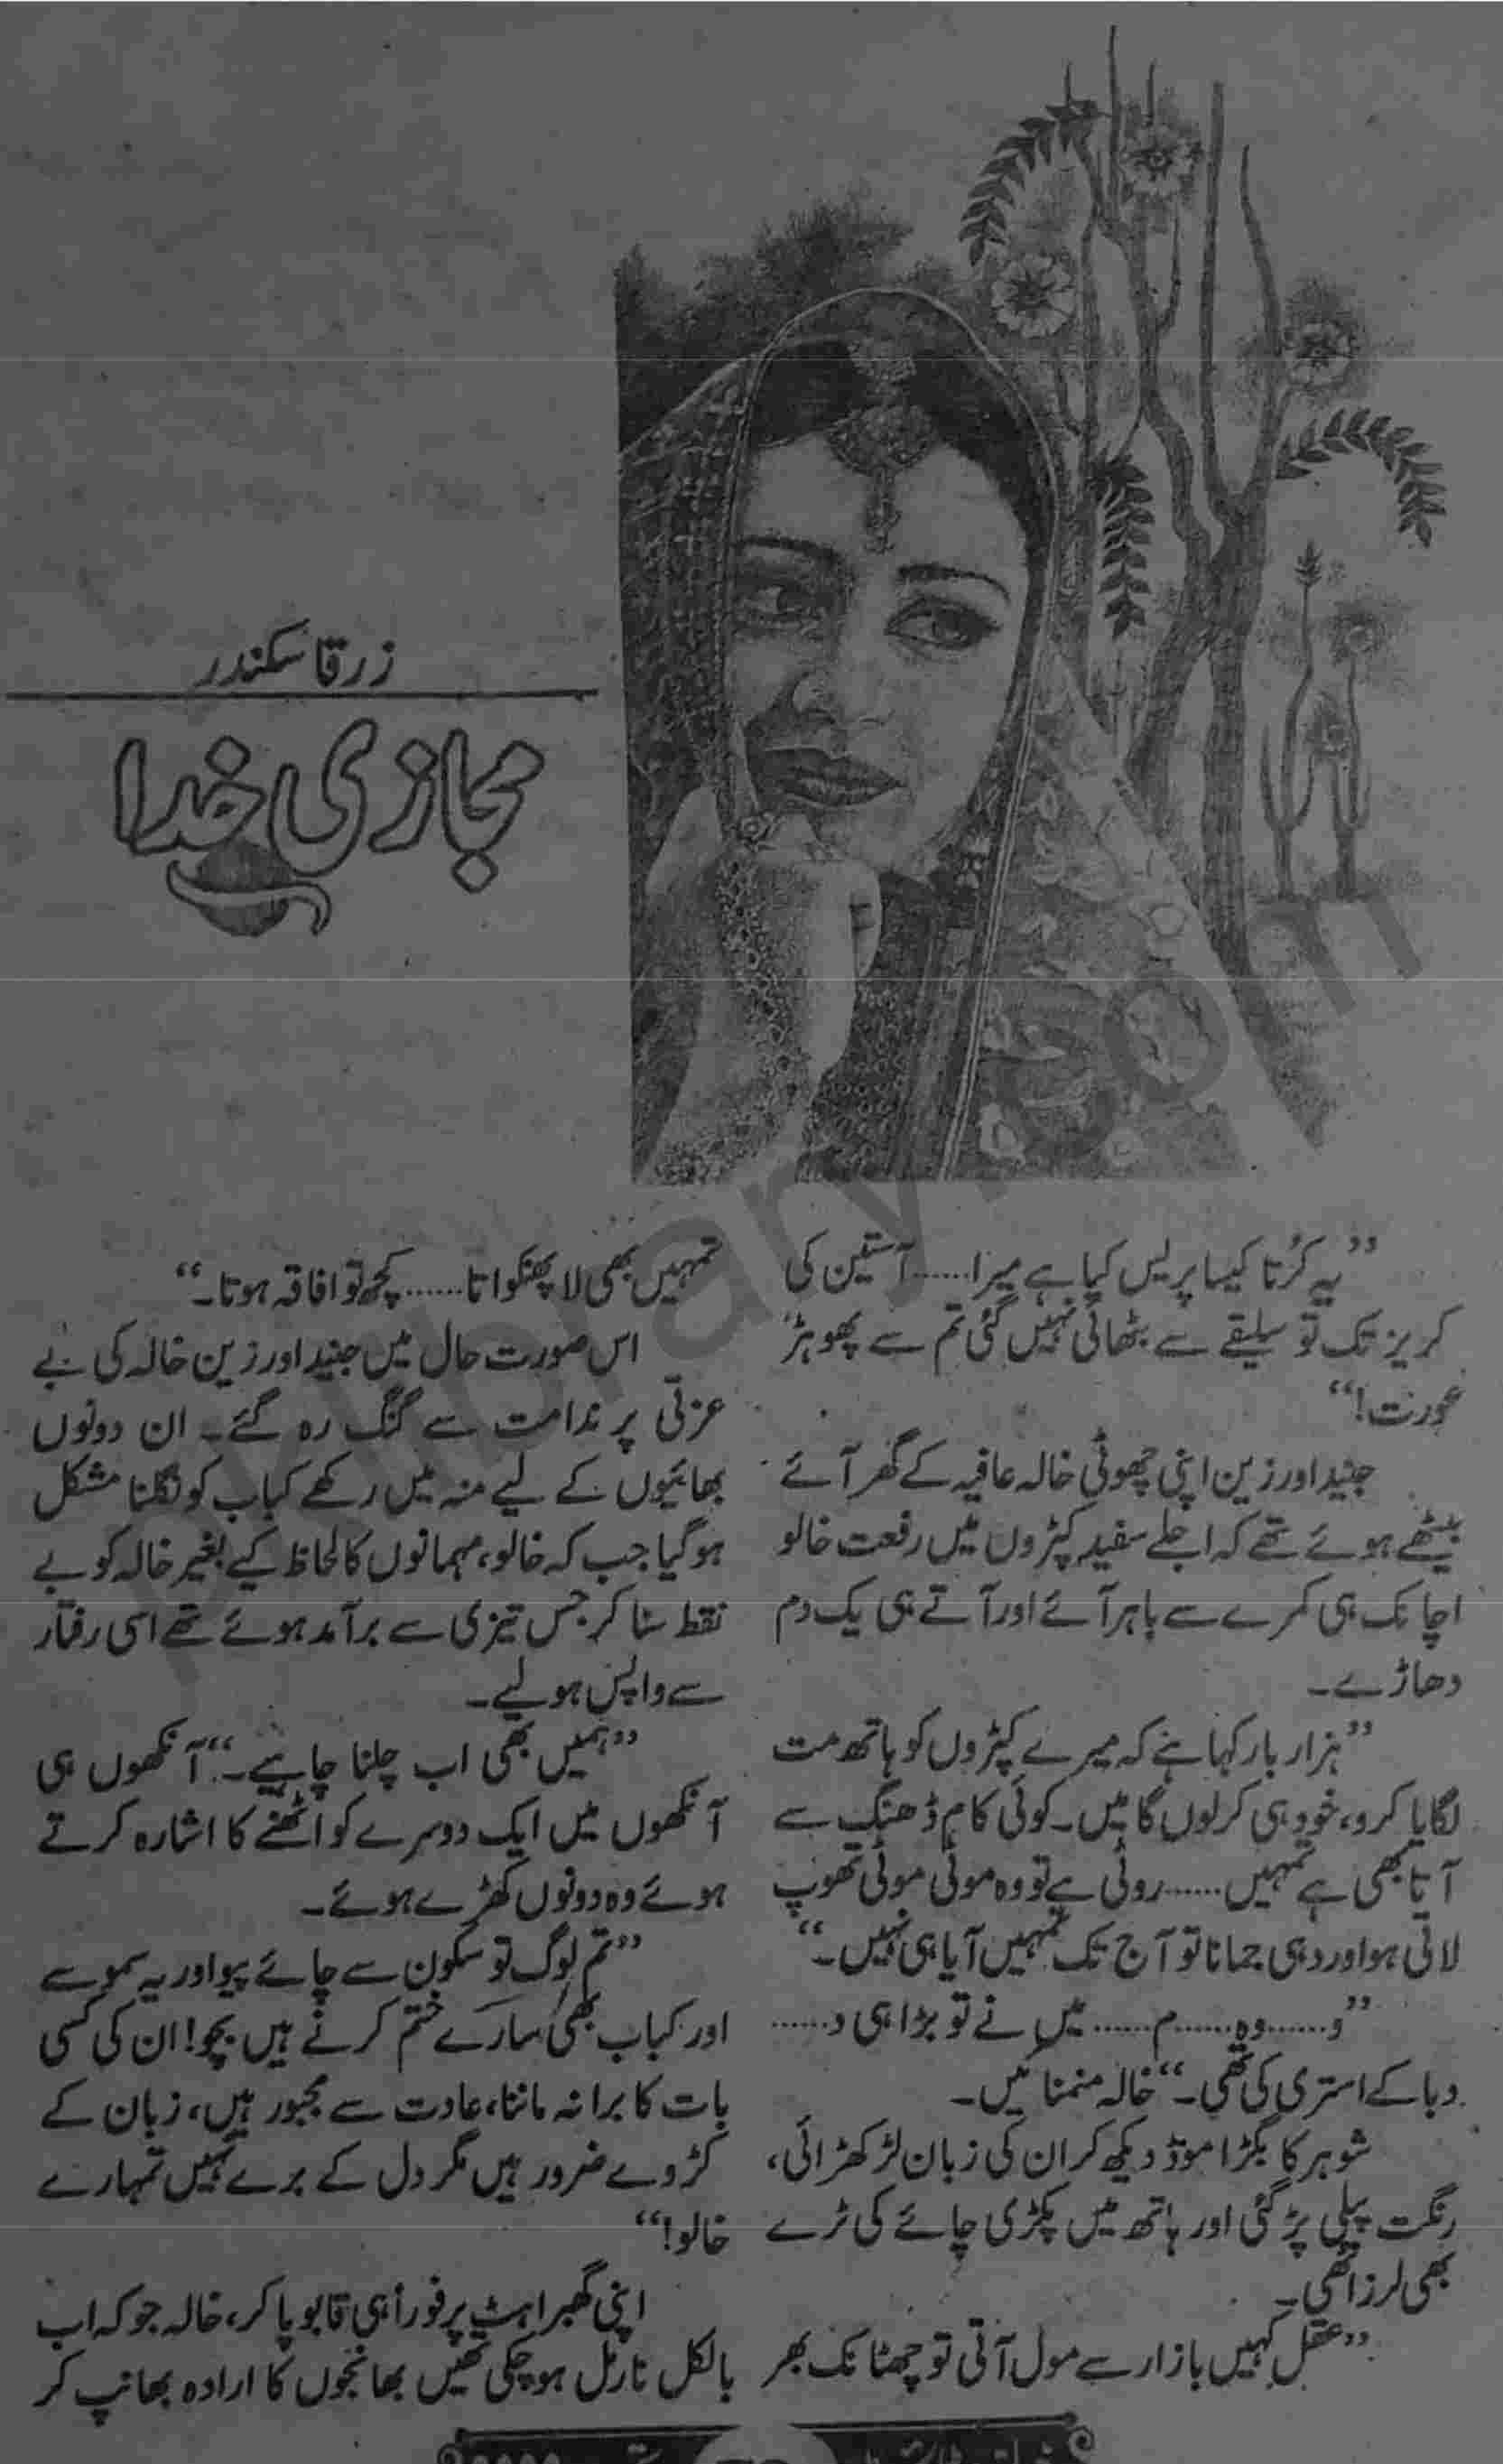 زرقا سکندر
مجازی خدا
”یہ کُرتا کیسا پریس کیا ہے میرا……آستین کی
کریز تک تو سلیقے سے بٹھائی نہیں گئی تم سے پھوہڑ
عورت!“
جنید اور زین اپنی چھوٹی خالہ عافیہ کے گھر آئے
بیٹھے ہوئے تھے کہ اجلے سفید کپڑوں میں رفعت خالو
اچانک ہی کمرے سے باہر آئے اور آتے ہی یک دم
دھاڑے۔
”ہزار بار کہا ہے کہ میرے کپڑوں کو ہاتھ مت
لگایا کرو، خود ہی کر لوں گا میں۔ کوئی کام ڈھنگ سے
آتا بھی ہے تمہیں……روٹی ہے تو وہ موٹی موٹی تھوپ
لاتی ہو اور دہی جمانا تو آج تک تمہیں آیا ہی نہیں۔“
”و……وہ……م……میں نے تو بڑا ہی د……
دبا کے استری کی تھی۔“ خالہ منمنائیں۔
شوہر کا بگڑا موڈ دیکھ کر ان کی زبان لڑکھڑائی،
رنگت پیلی پڑ گئی اور ہاتھ میں پکڑی چائے کی ٹرے
بھی لرز اٹھی۔
”عقل کہیں بازار سے مول آتی تو چھٹانک بھر
تمہیں بھی لا پھنکواتا……کچھ تو افاقہ ہوتا۔“
اس صورت حال میں جنید اور زین خالہ کی بے
عزتی پر ندامت سے گنگ رہ گئے۔ ان دونوں
بھائیوں کے لیے منہ میں رکھے کباب کو نگلنا مشکل
ہوگیا جب کہ خالو، مہمانوں کا لحاظ کیے بغیر خالہ کو بے
نقط سنا کر جس تیزی سے برآمد ہوئے تھے اسی رفتار
سے واپس ہولیے۔
”ہمیں بھی اب چلنا چاہیے۔“ آنکھوں ہی
آنکھوں میں ایک دوسرے کو اٹھنے کا اشارہ کرتے
ہوئے وہ دونوں کھڑے ہوئے۔
”تم لوگ تو سکون سے چائے پیو اور یہ سموسے
اور کباب بھی سارے ختم کرنے ہیں بچو! ان کی کسی
بات کا برا نہ ماننا، عادت سے مجبور ہیں، زبان کے
کڑوے ضرور ہیں مگر دل کے برے نہیں تمہارے
خالو!“
اپنی گھبراہٹ پر فوراً ہی قابو پا کر، خالہ جو کہ اب
بالکل نارمل ہوچکی تھیں بھانجوں کا ارادہ بھانپ کر